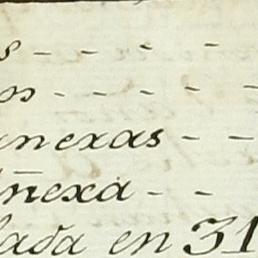 s - - - -
os - - - - -
anexas - - -
añexa - -
lada en 31